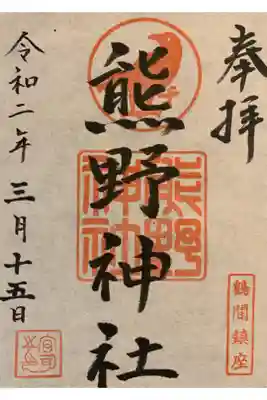 奉拝
熊野神社
熊野
神社
鶴間鎮座
令和二年三月十五日